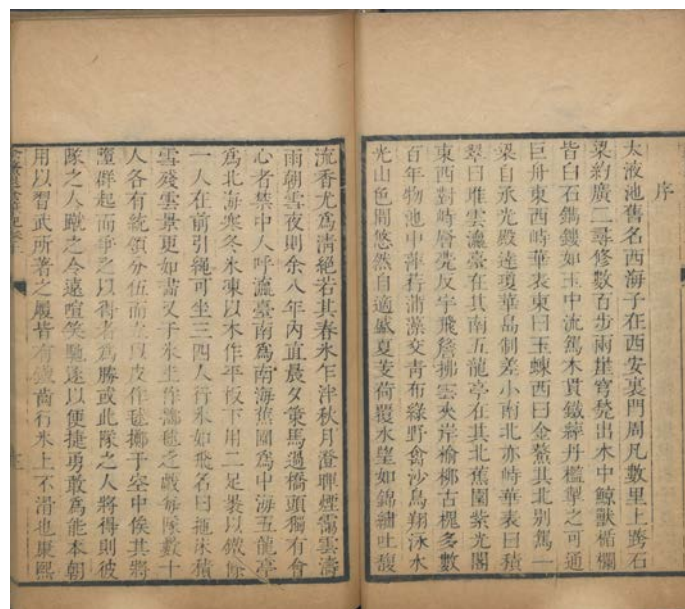 序
太液池舊名西海子在西安裏門周凡數里上跨石
梁約廣二尋修數百步兩崖穹甃出水中鯨獸楯欄
皆白石鐫鏤如玉中流駕木貫鐵繂丹檻掣之可通
巨舟東西峙華表東曰玉蝀西曰金鰲其北別駕一
梁自承光殿達瓊華島制差小南北亦峙華表曰積
翠曰堆雲瀛臺在其南五龍亭在其北蕉園紫光閣
東西對峙層甍反宇飛簷拂雲夾岸榆柳古槐多數
百年物池中萍荇蒲藻交青布綠野禽沙鳥翔泳水
光山色間悠然自適盛夏芰荷覆水望如錦繡吐馥
流香尤爲清絕若其春水乍泮秋月澄輝煙靄雲濤
雨朝雪夜則余八年內直晨夕策馬過橋頭獨有會
心者禁中人呼瀛臺南爲南海蕉園爲中海五龍亭
爲北海寒冬氷凍以木作平板下用二足裝以鐵條
一人在前引繩可坐三四人行氷如飛名曰拖床積
雪殘雲景更如畫又于氷上作擲毬之戲每隊數十
人各有統領分伍而立以皮作毬擲于空中俟其將
墮群起而爭之以得者爲勝或此隊之人將得則彼
隊之人蹴之令遠喧笑馳逐以便捷勇敢爲能本朝
用以習武所著之履皆有鐵齒行氷上不滑也康熙